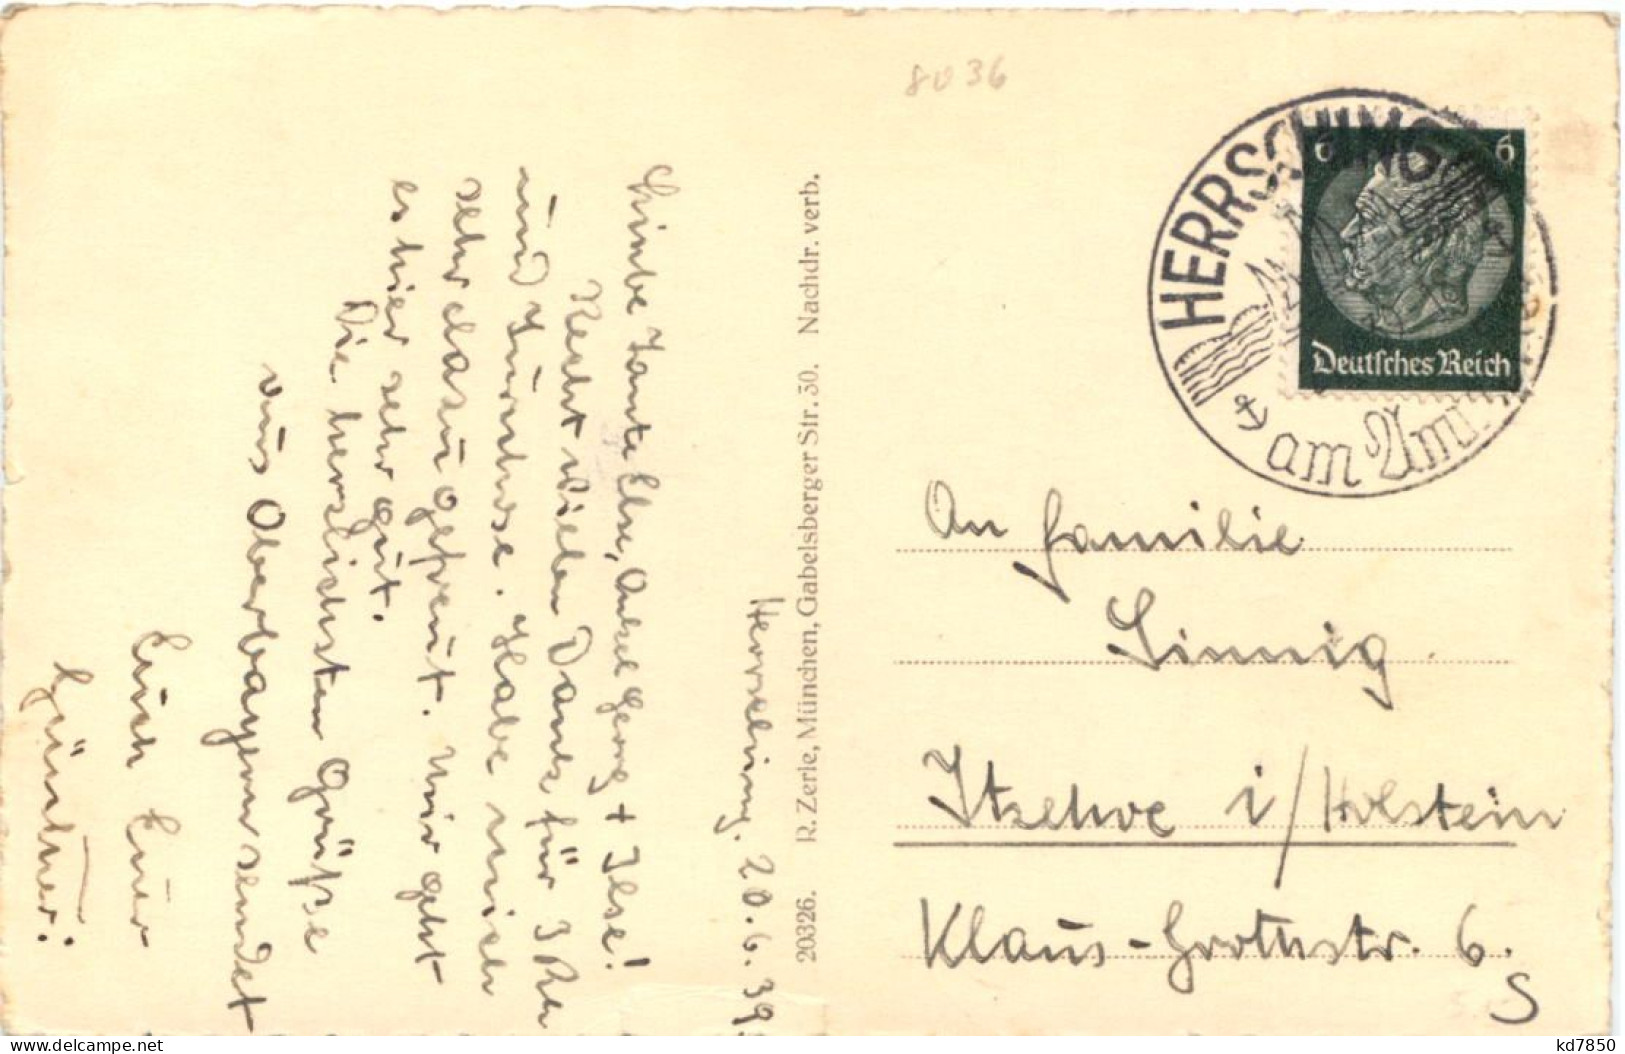 8036
HERRSCHING
am Am
6 6
Deutsches Reich
Herrsching, 20.6.39.
Liebe Tante Else, Onkel Georg + Ilse!
Recht vielen Dank für 3 RM
und Zuruhse. Habe mich
sehr dazu gefreut. Mir geht
es hier sehr gut.
Die herzlichsten Grüße
aus Oberbayern sendet
Euch Euer
Günther.
20326. R. Zerle, München, Gabelsberger Str. 30. Nachdr. verb.
An Familie
Sinnig
Itzehoe i/Holstein
Klaus-Grothstr. 6.
S
delcampe.net
kd7850